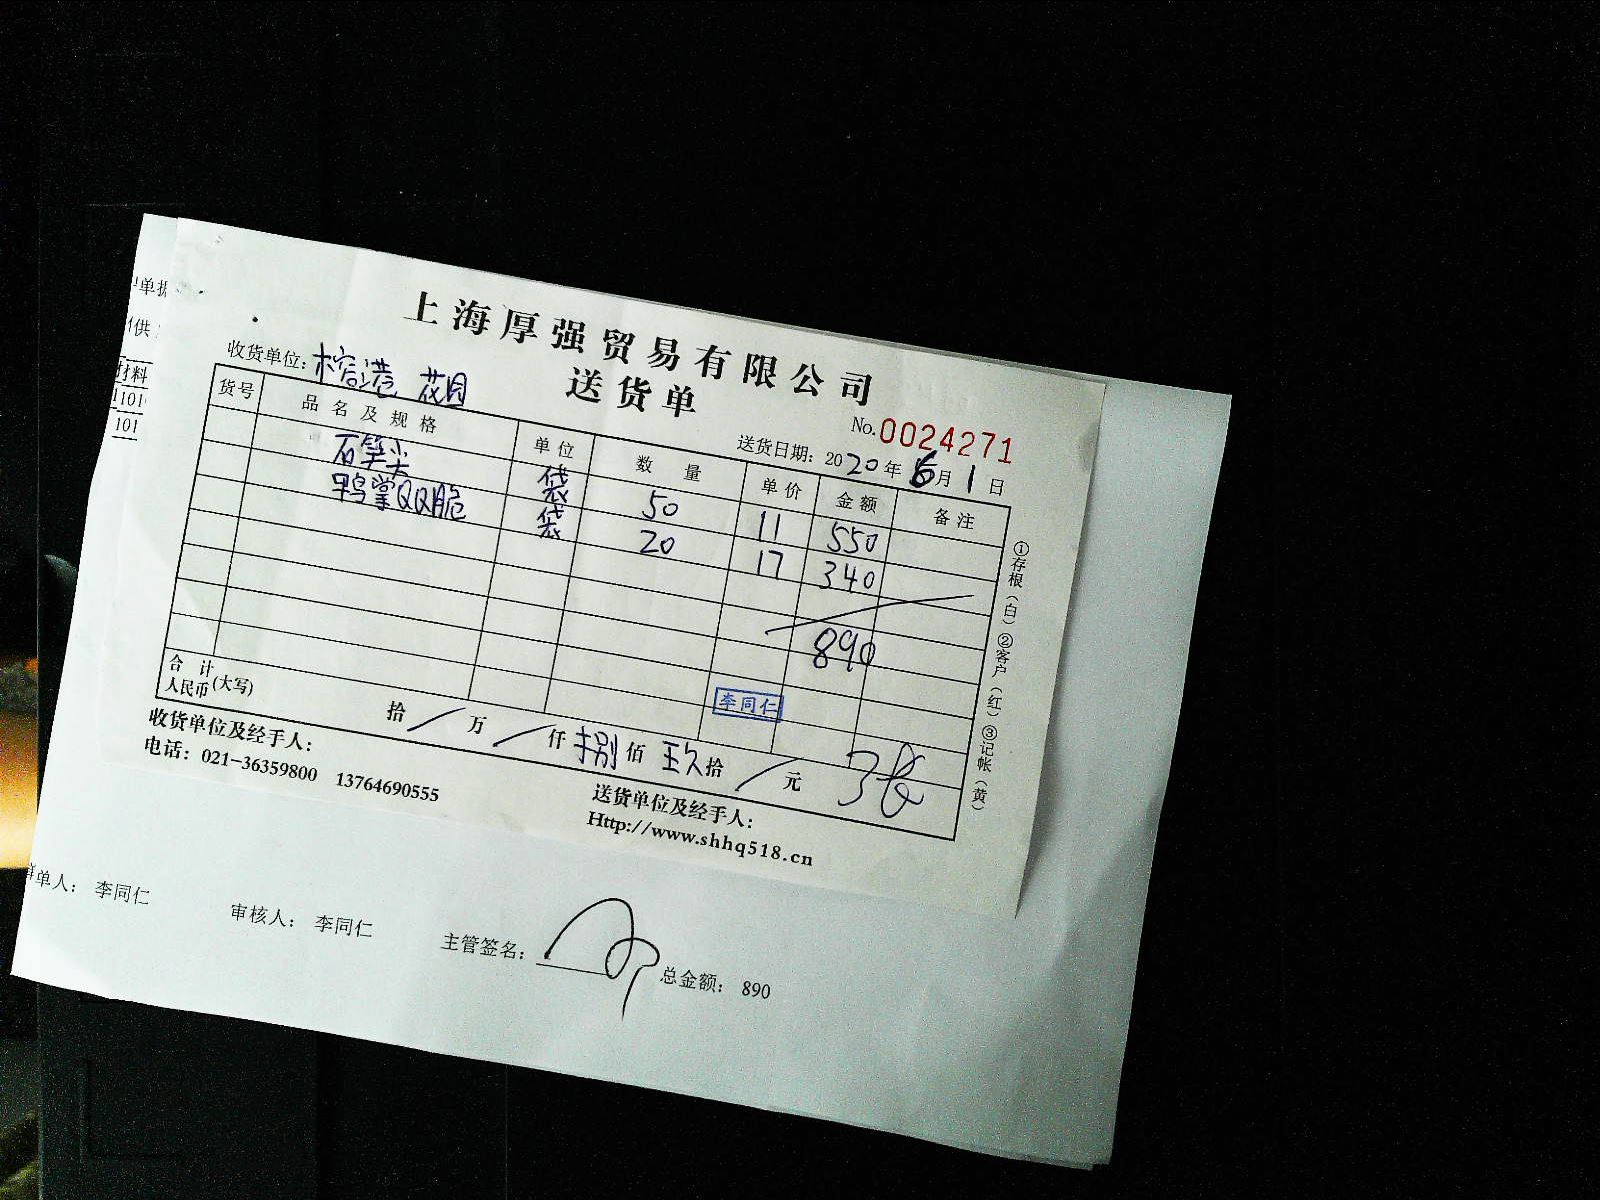 上海厚强贸易有限公司
送货单
No.0024271
收货单位：榕港 花园
送货日期：2020年6月1日
货号 品名及规格 单位 数量 单价 金额 备注
石笋尖 袋 50 11 550
鸭掌QQ脆 袋 20 17 340
890
李同仁
合计
人民币(大写) 拾／万／仟捌佰玖拾／元
收货单位及经手人：
送货单位及经手人：
电话：021-36359800 13764690555
Http://www.shhq518.cn
①存根（白）②客户（红）③记帐（黄）
单据
供
材料
1101
101
单人： 李同仁 审核人： 李同仁 主管签名： 总金额： 890